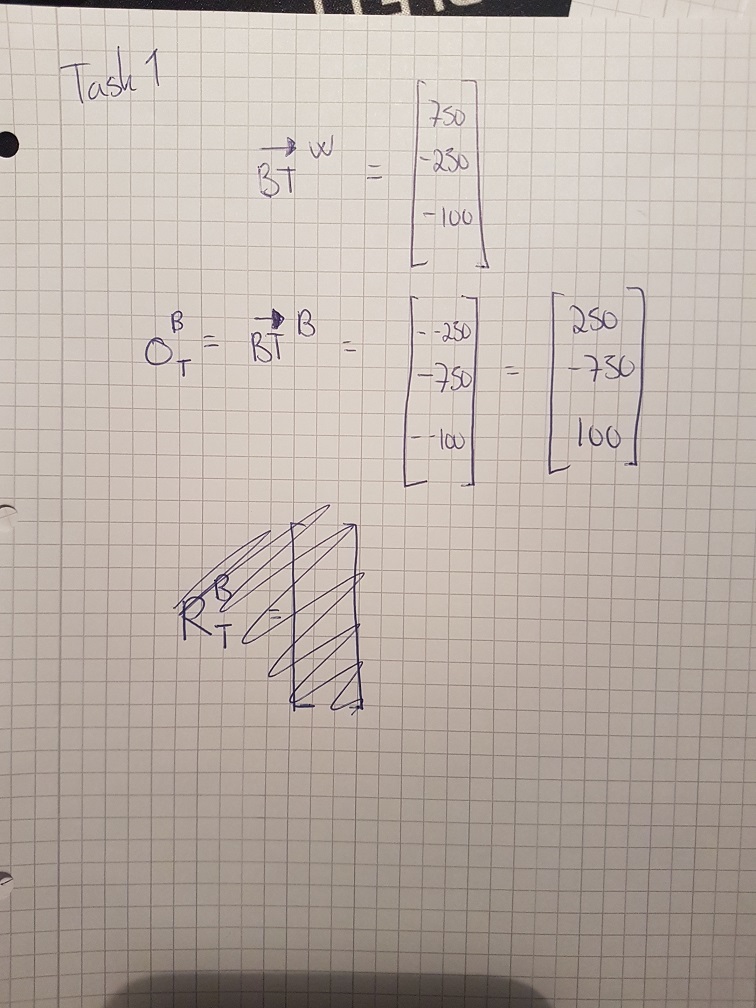 Task 1
BT W = [750 -250 -100]
O B T = BT B = [--250 -750 --100] = [250 -750 100]
R B T =